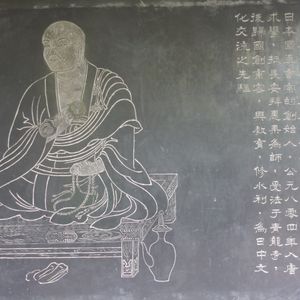 日本國真言宗的創始人，公元八零四年入唐
求學，抵長安拜惠果為師，受法于青龍寺，
後歸國創密宗，興教育，修水利，為日中文
化交流之先驅